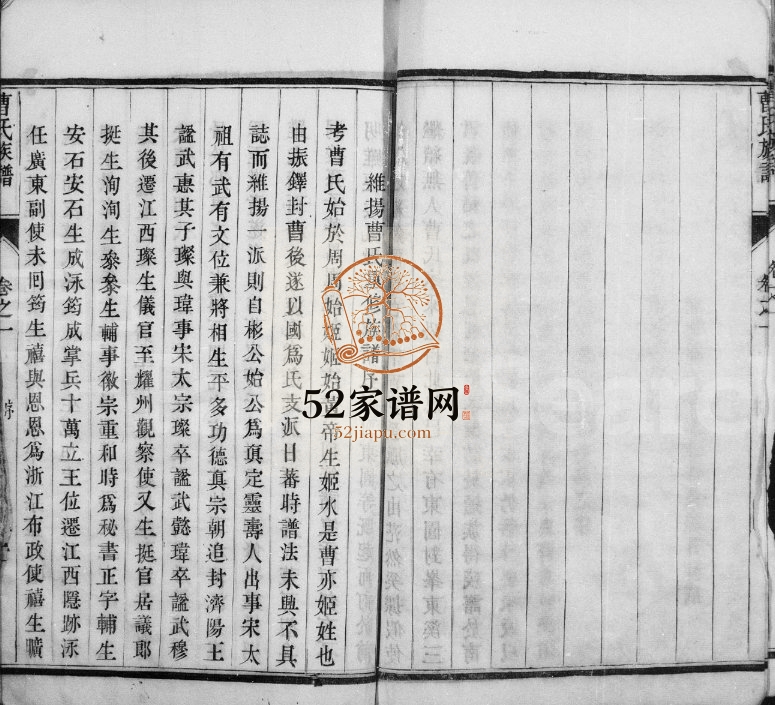 曹氏族譜
卷之一
維揚曹氏修族譜序
考曹氏始於周周始姬姬始帝生姬水是曹亦姬姓也
由振鐸封曹後遂以國為氏支派日蕃時譜法未興不具
誌而維揚一派則自彬公始公為真定靈壽人出事宋太
祖有武有文位兼將相生平多功德真宗朝追封濟陽王
諡武惠其子璨與瑋事宋太宗璨卒諡武懿瑋卒諡武穆
其後遷江西璨生儀官至耀州觀察使又生挺官居議郎
挺生洵洵生叅叅生輔事徽宗重和時為秘書正字輔生
安石安石生成泳筠成掌兵十萬立王位遷江西隱跡泳
任廣東副使未囘筠生禧與恩恩為浙江布政使禧生曠
曹氏族譜
卷之一
序
52家谱网
52jiapu.com